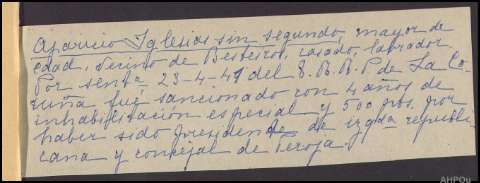 Aparicio Iglesias sin segundo, mayor de
edad, vecino de Besteiros, casado, labrador
Por sentª 23-4-41 del T.R.R.P de La Co-
ruña fué sancionado con 4 años de
inhabilitación especial y 500 pts. por
haber sido presidente de izqda republi-
cana y concejal de Peroja.
AHPOu